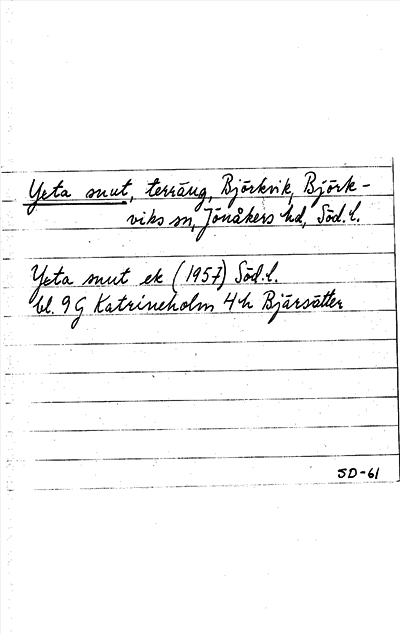 Yeta snut, terräng, Björkvik, Björk-
viks sn, Jönåkers hd, Söd. l.
Yeta snut ek (1957) Söd. l.
bl. 9 G Katrineholm 4 h Bjärsätter
SD-61